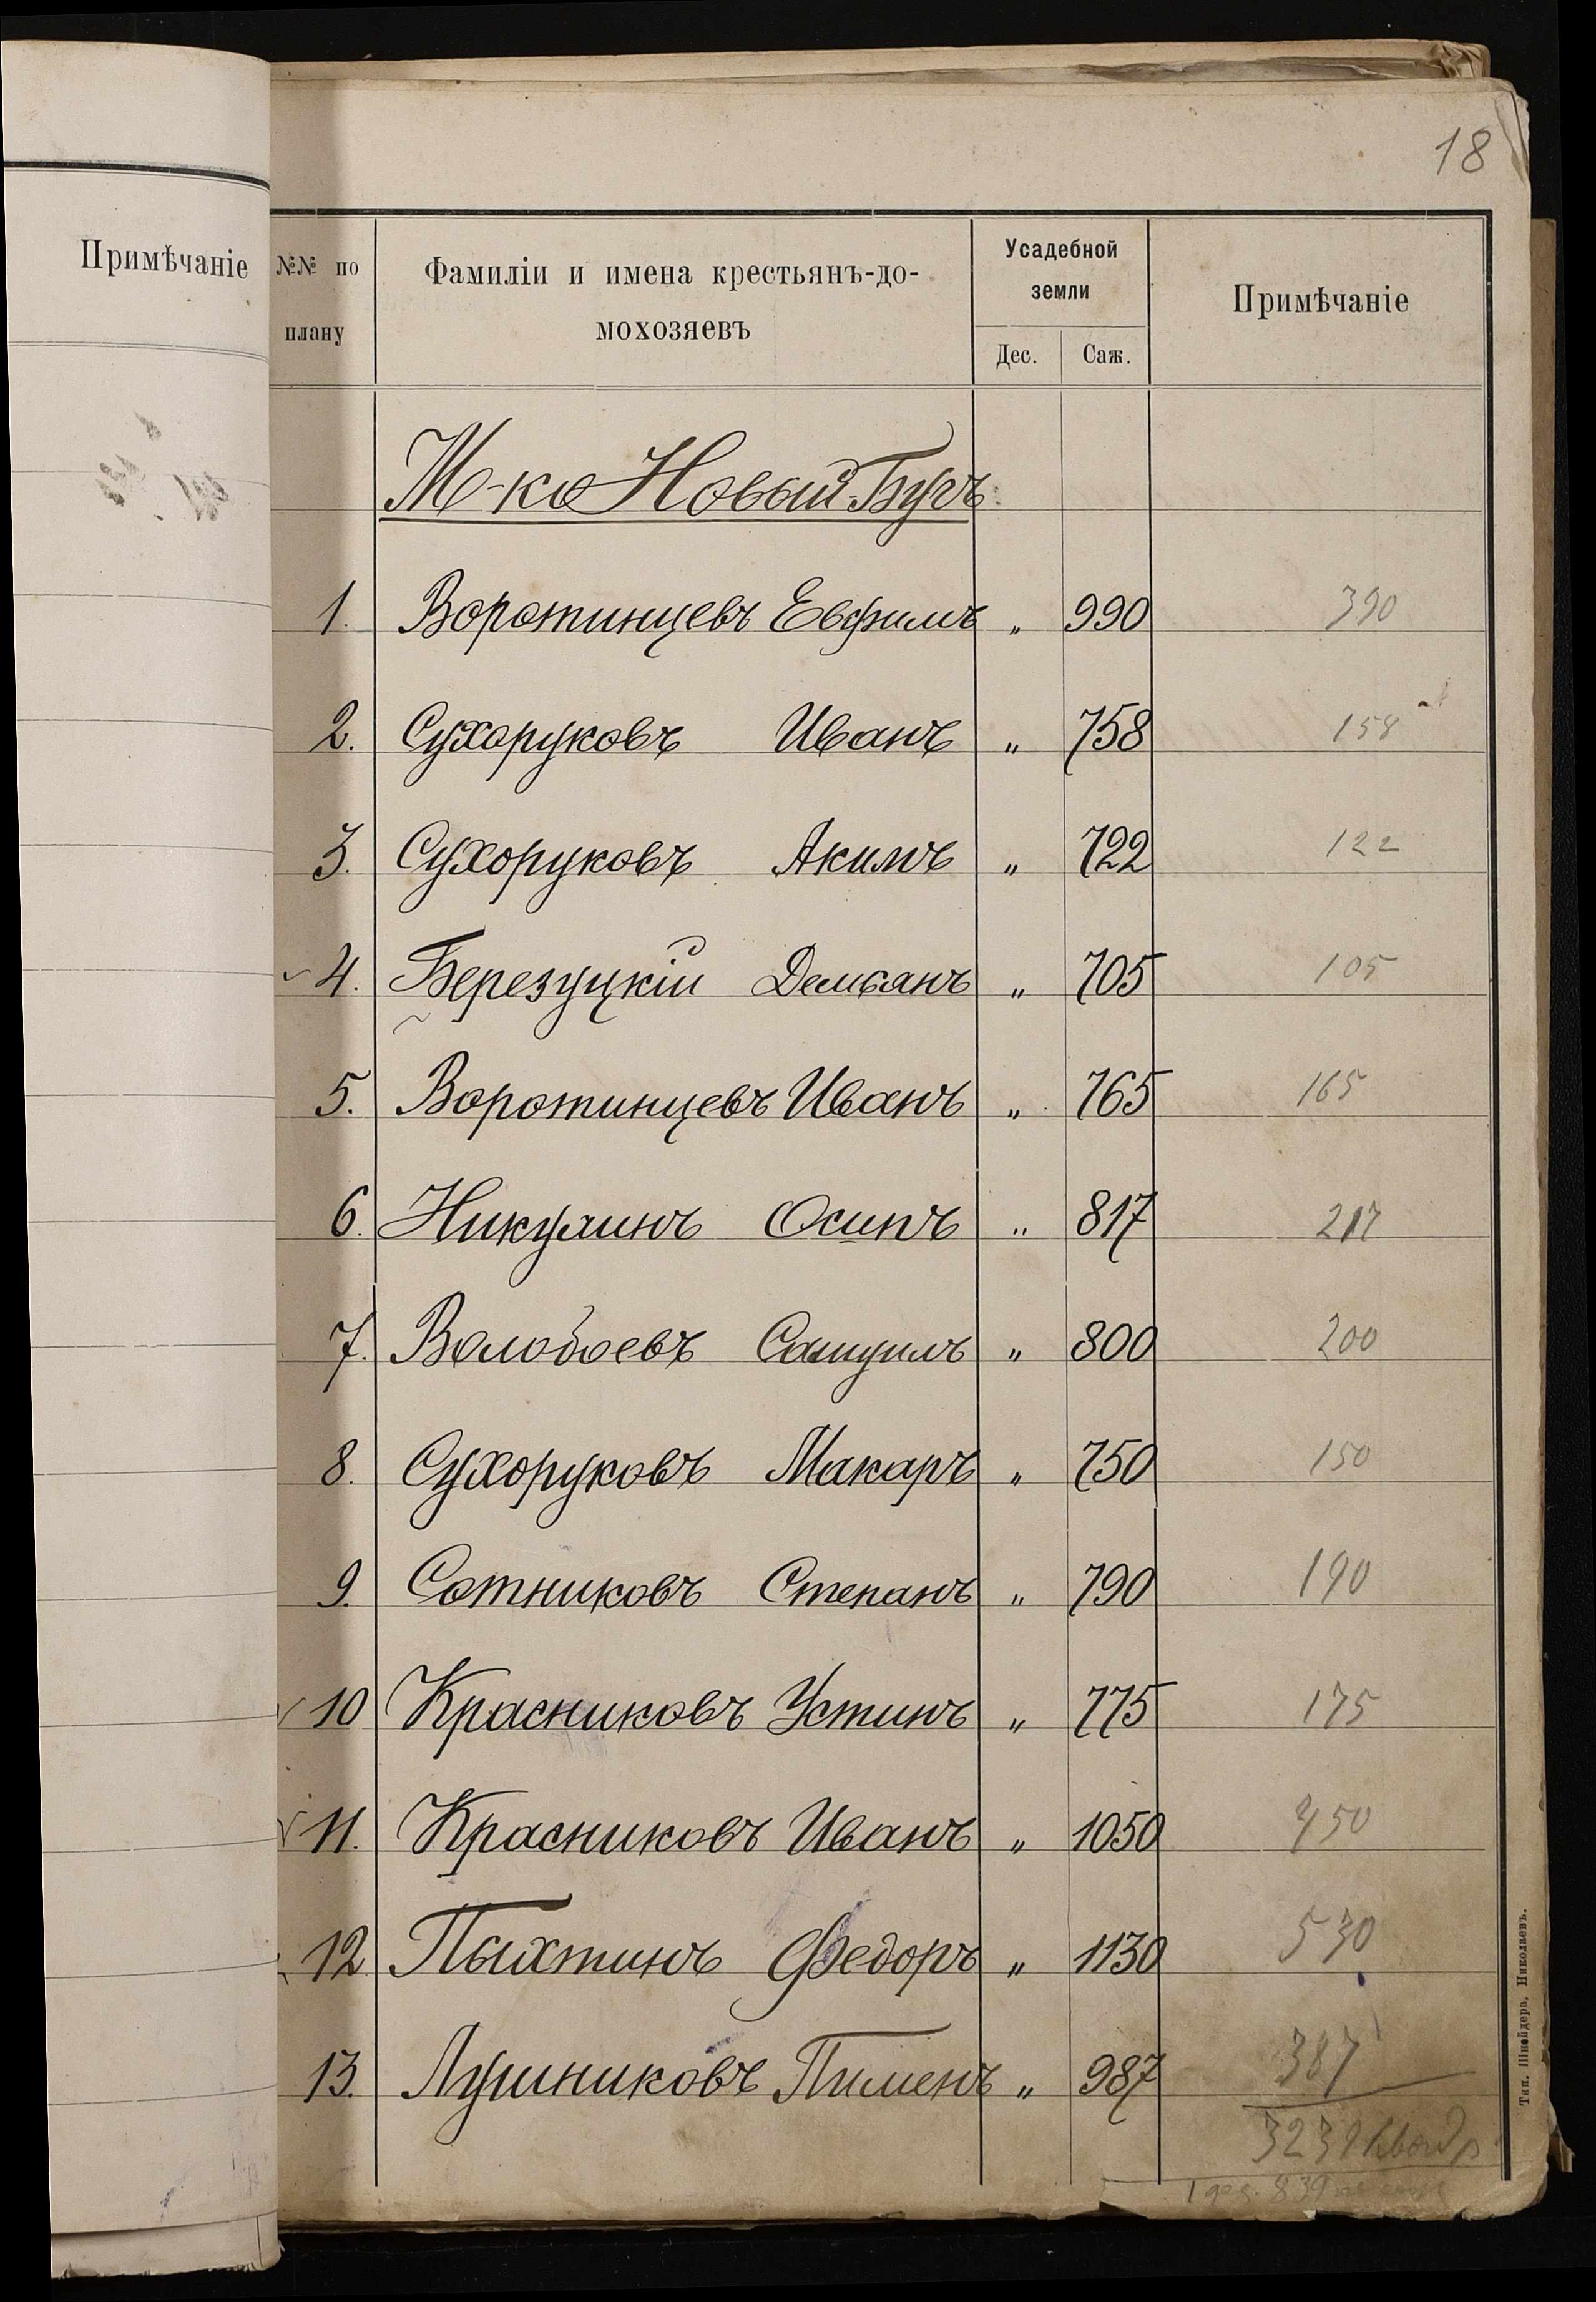 18
Примѣчаніе
№№ по плану
Фамиліи и имена крестьянъ-до-
мохозяевъ
Усадебной
земли
Дес. Саж.
Примѣчаніе
М-ко Новый-Бугъ.
1. Воротинцевъ Евфимъ „ 990 390
2. Сухоруковъ Иванъ „ 758 158
3. Сухоруковъ Акимъ „ 722 122
4. Березуцкій Демьянъ „ 705 105
5. Воротинцевъ Иванъ „ 765 165
6. Никулинъ Осипъ „ 817 217
7. Волобоевъ Самуилъ „ 800 200
8. Сухоруковъ Макаръ „ 750 150
9. Сотниковъ Степанъ „ 790 190
10 Красниковъ Устинъ „ 775 175
11. Красниковъ Иванъ „ 1050 450
12 Пыхтинъ Федоръ „ 1130 530
13. Лушниковъ Пименъ „ 987 387
3239
1 дес. 839
Тип. Шнейдера, Николаевъ.